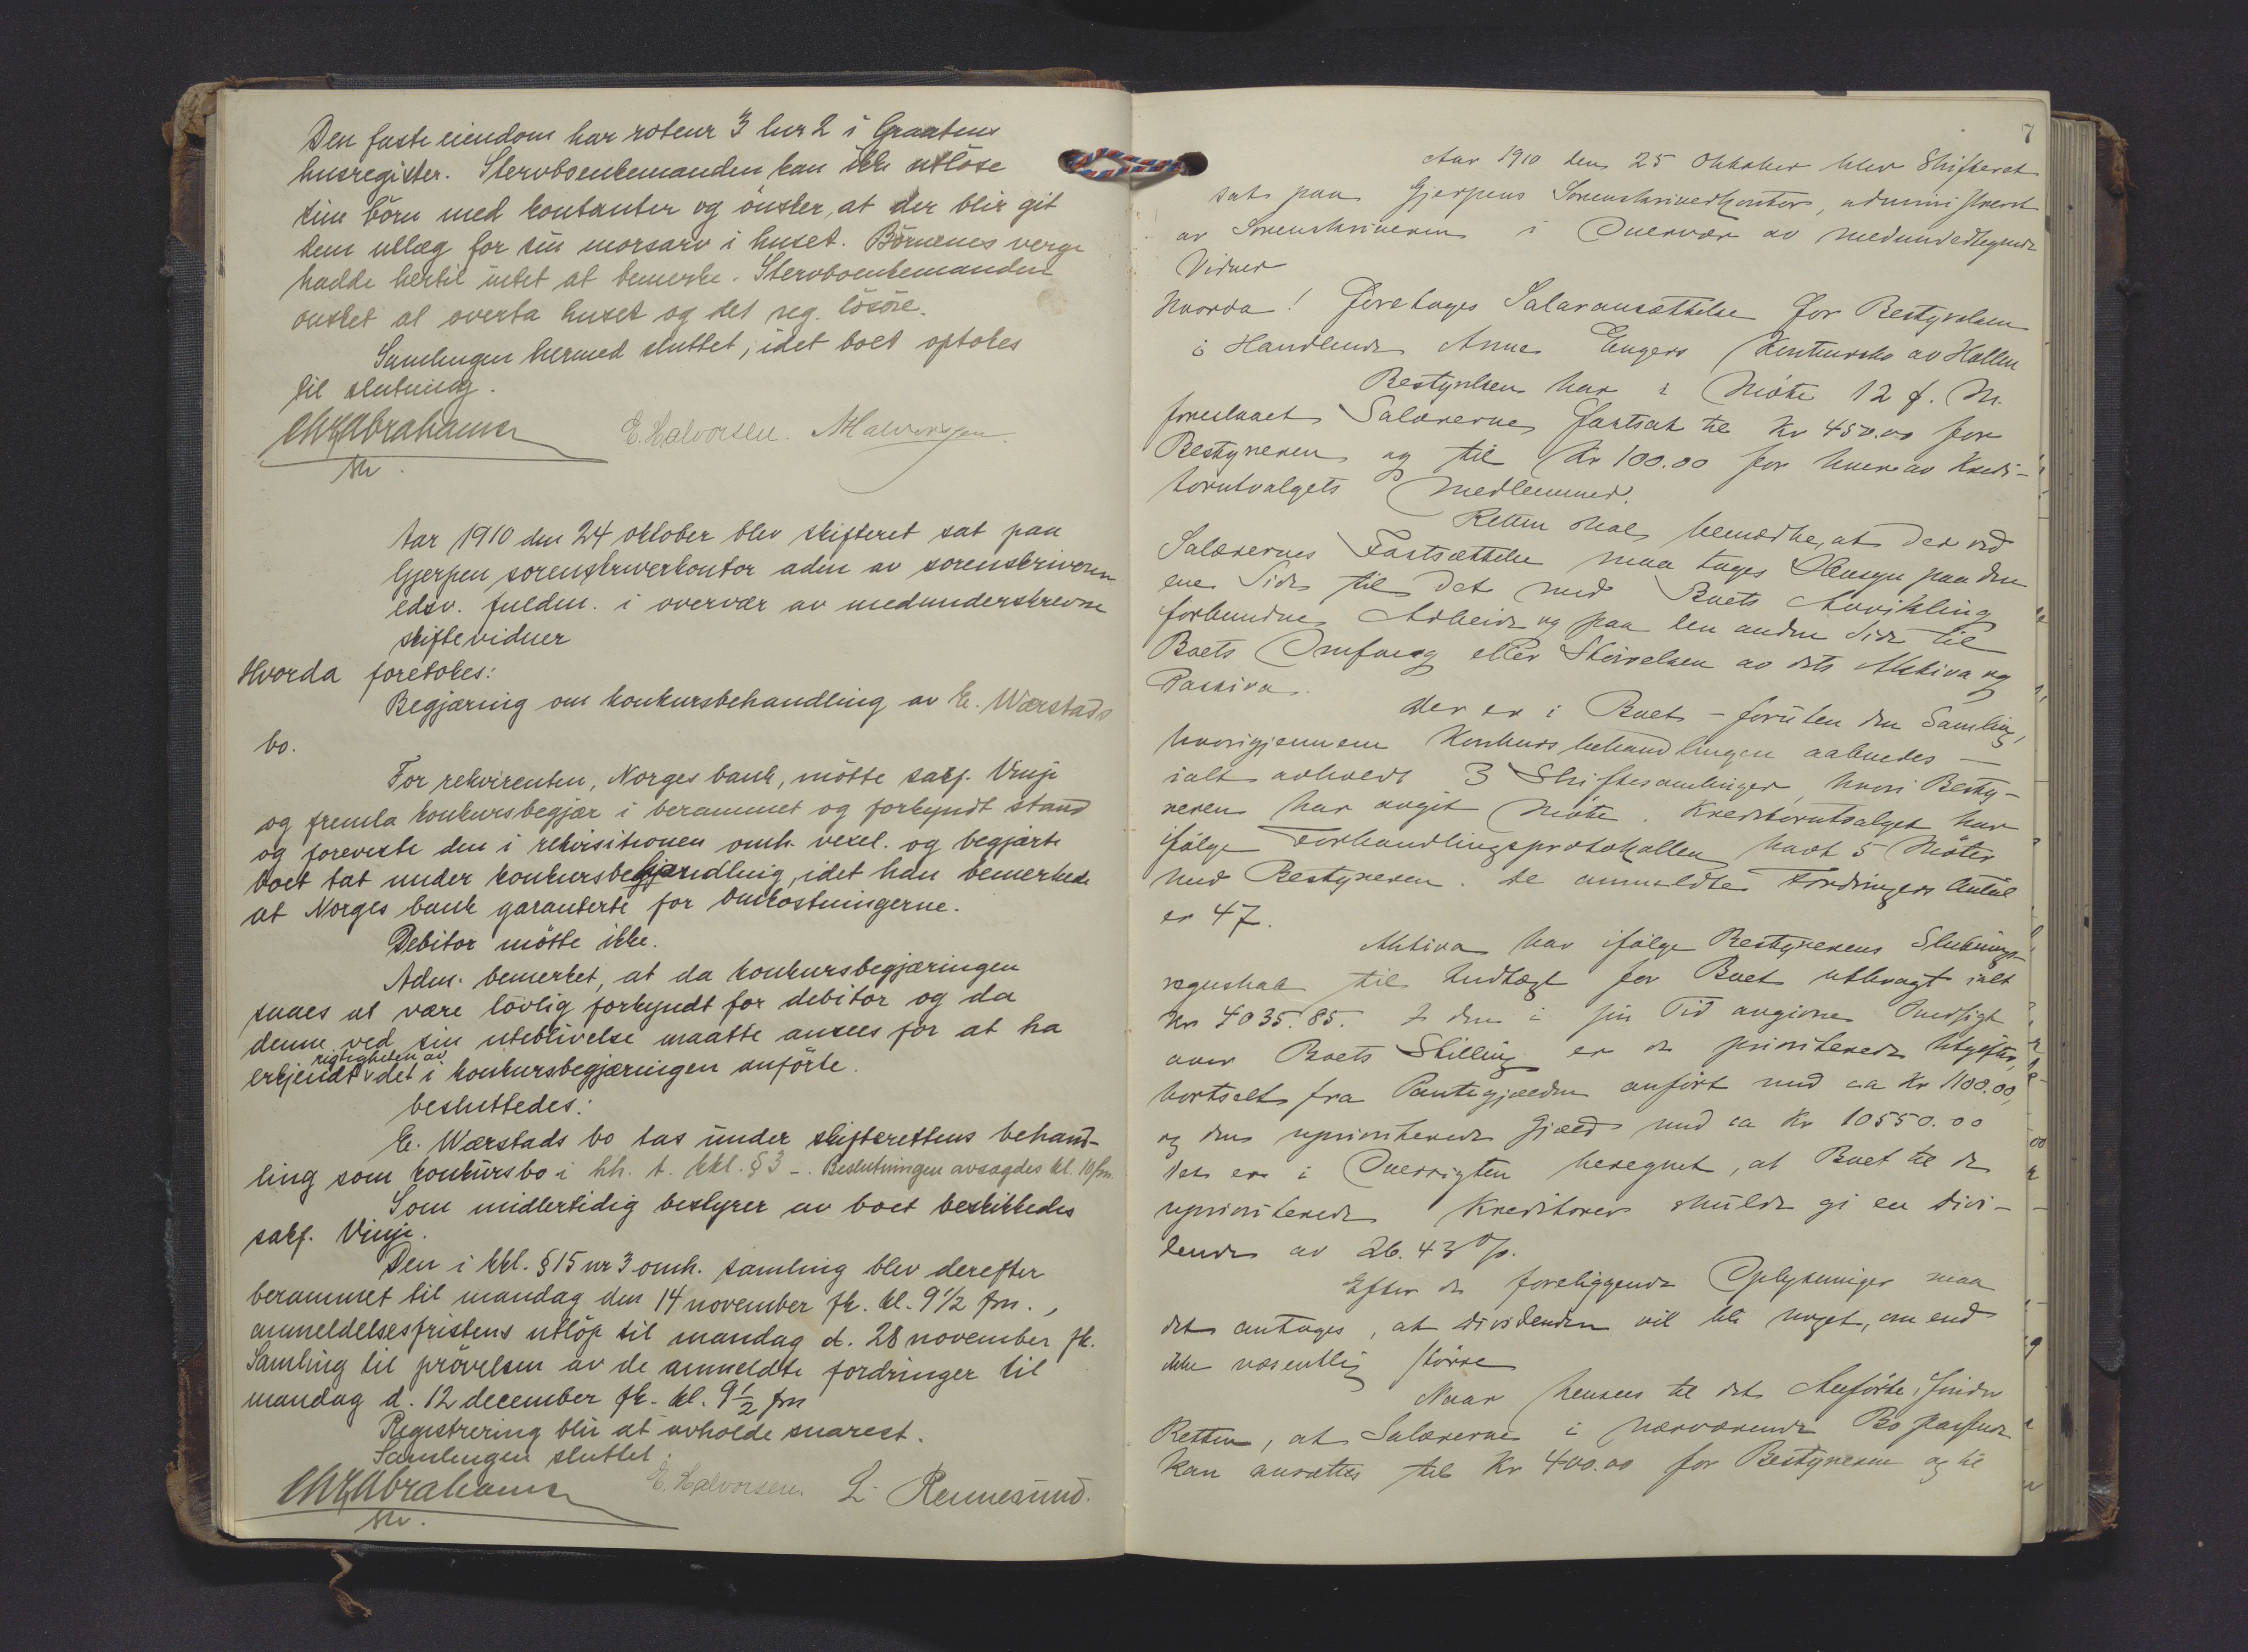 Den faste eiendom har rotenr 3 lnr 2 i Graatens
husregister. Stervboenkemanden kan ikke utløse
sine børn med kontanter og ønsker, at der blir git
dem utlæg for sin morsarv i huset. Børnenes verge
hadde hertil intet at bemerke. Stervboenkemanden
ønsket at overta huset og det reg. løsøre.
Samlingen hermed sluttet, idet boet optokes
til slutning.
Chr Abrahamsen E. Halvorsen. M Halvorsen.
Aar 1910 den 24 oktober blev skifteret sat paa
Gjerpen sorenskriverkontor adm av sorenskriveren
edsv. fuldm. i overvær av medunderskrevne
skiftevidner
Hvorda foretokes:
Begjæring om konkursbehandling av E. Wærstads
bo.
For rekvirenten, Norges bank, møtte sakf. Vinje
og fremla konkursbegjær i berammet og forkyndt stand
og foreviste den i rekvisitionen omh. vexel. og begjærte
boet tat under konkursbehandling, idet han bemerkede
at Norges bank garanterte for omkostningerne.
Debitor møtte ikke.
Adm. bemerket, at da konkursbegjæringen
saaes at være lovlig forkyndt for debitor og da
denne ved sin uteblivelse maatte ansees for at ha
erkjendt rigtigheten av det i konkursbegjæringen anførte.
besluttedes:
E. Wærstads bo tas under skifterettens behand-
ling som konkursbo i hh. t. kkl. § 3 -. Beslutningen avsagdes kl. 10 fm.
Som midlertidig bestyrer av boet beskikkedes
sakf. Vinje.
Den i kkl. § 15 nr 3 omh. samling blev derefter
berammet til mandag den 14 november fk. kl. 9 1/2 fm.,
anmeldelsesfristens utløp til mandag d. 28 november fk.
Samling til prøvelsen av de anmeldte fordringer til
mandag d. 12 december fk. kl. 9 1/2 fm
Registrering blir at avholde snarest.
Samlingen sluttet.
Chr Abrahamsen E. Halvorsen. L. Rennesund.
7
Aar 1910 den 25 Oktober blev Skifteret
sat paa Gjerpens Sorenskriverkontor, administreret
av Sorenskriveren i Overvær av medundertegnede
Vidner
Hvorda! Foretages Salæransættelse for Bestyrelsen
i Handlende Anne Engers Konkursbo av Hollen
Bestyrelsen har i Møte 12 d. M.
foreslaaet Salærerne fastsat til Kr 450.00 for
Bestyreren og til Kr 100.00 for hver av Kredi-
torutvalgets Medlemmer.
Retten skal bemærke, at der ved
Salærernes Fastsættelse maa tages Hensyn paa den
ene Side til det med Boets Avvikling
forbundne Arbeide og paa den anden Side til
Boets Omfang eller Størrelsen av dets Aktiva og
Passiva.
Der er i Boet - foruten den Samling,
hvorigjennem Konkursbehandlingen aabnedes -
ialt avholdt 3 Skiftesamlinger, hvori Besty-
reren har avgit Møte. Kreditorutvalget har
ifølge Forhandlingsprotokollen havt 5 Møter
med Bestyreren. De anmeldte Fordringers Antal
er 47.
Aktiva har ifølge Bestyrerens Slutnings-
regnskab til Indtægt for Boet utbragt ialt
Kr 4035.85. I den i sin Tid angivne Oversigt
over Boets Stilling er de prioriterede Utgifter,
bortset fra Pantegjælden anført med ca Kr 1100.00,
og den uprioriterede Gjæld med ca Kr 10550.00
Det er i Oversigten beregnet, at Boet til de
uprioriterede Kreditorer skulde gi en Divi-
dende av 26.43 %.
Efter de foreliggende Oplysninger maa
det antages, at Dividenden vil bli noget, om end
ikke væsentlig større
Naar hensees til det Anførte, finder
Retten, at Salærerne i nærværende Bo passende
kan ansættes til Kr 400.00 for Bestyreren og til